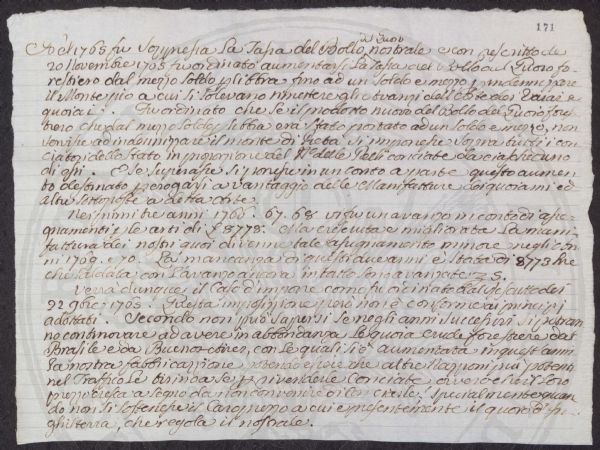 171
al Cuoio
Nel 1765 fu soppressa la Tassa del Bollo nostrale e con rescritto de
20 Novembre 1765 fu ordinato aumentarsi la Tassa del Bollo del Cuoio fo-
restiero dal mezzo soldo p libbra fino ad un soldo e mezzo p indennizzare
il Monte pio a cui si solevano rimettere gli avanzi dell'Arte dei Vaiai e
quoiai. Fu ordinato che se il prodotto nuovo del Bollo del Cuoio fore-
stiero che dal mezzo soldo p libbra era stato portato ad un soldo e mezzo, non
servisse ad indennizzare il monte di Pietà si imponesse sopra tutti i con-
ciatori dello Stato in proporzione del N.º delle Pelli conciate da ciascheduno
di essi. E se superasse si ponesse in un conto a parte questo aumen-
to destinato erogarsi a vantaggio delle Manifatture dei quoiami ed
altre sottoposte a detta Arte.
Nei primi tre anni 1766. 67. 68 vi fu un avanzo in conto di asse-
gnamenti p le arti di £ 8778. Ma cresciuta e migliorata la mani-
fattura dei nostri quoi divenne tale assegnamento minore negli an-
ni 1769. e 70. La mancanza di questi due anni è stata di 8773 lire
che saldata con l'avanzo ancora intatto sono avanzate £ 5.
Verrà dunque il Caso d'imporre come fu ordinato dal Rescritto dei
22 9bre 1765. Questa imposizione però non è conforme ai principi
adottati. Secondo non può sapersi se negli anni successivi si potran-
no continovare ad avere in abbondanza le quoia crude forestiere dal
Brasile e da Buenos-aires, con le quali si è aumentata in questi anni
la nostra fabbricazione potendo essere che altre Nazioni più potenti
nel Traffico le tirino a se p rivenderle Conciate, ovvero che il loro
prezzo cresca a segno da non convenire di conciarle. Specialmente quan-
do non si sostenesse il Caro prezzo a cui è presentemente il quoio d'In-
ghilterra, che regola il nostrale.